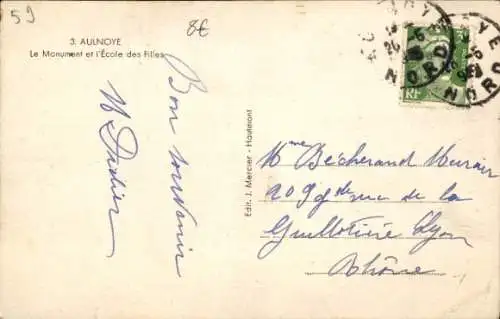 59
8€
3. AULNOYE
Le Monument et l'École des Filles
Bon souvenir
M Didier
Edit. J. Mercier - Hautmont
Mme Bécherand Murair
209 gde rue de la
Guillotière Lyon
Rhône
NORD
RF
NORD